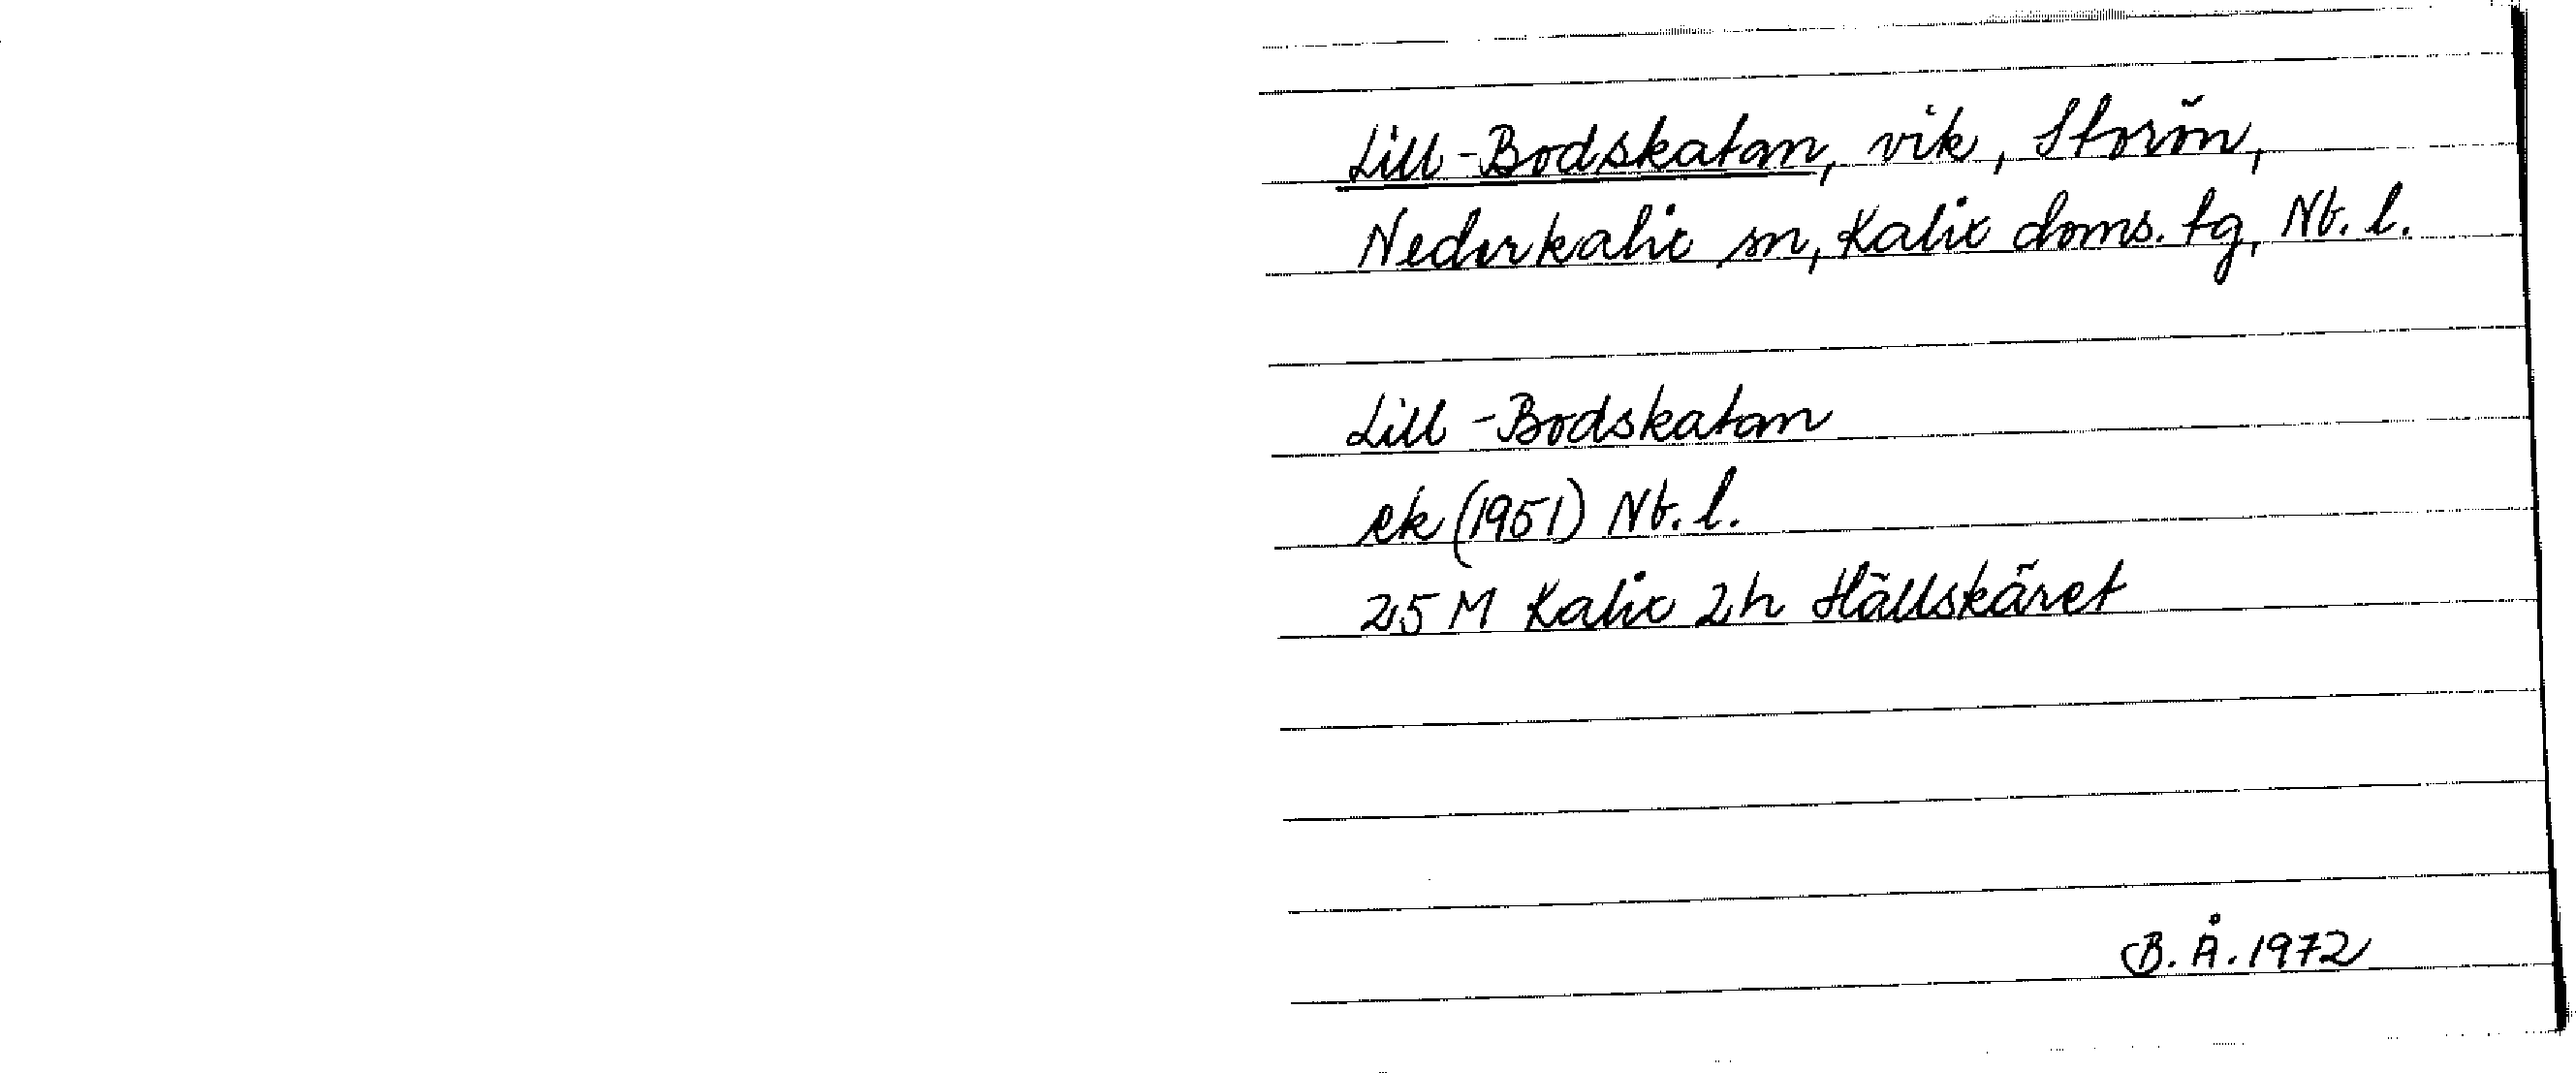 Lill-Bodskatan, vik, Storön,
Nederkalix sn, Kalix doms. tg, Nb. l.
Lill-Bodskatan
ek (1951) Nb. l.
25 M Kalix 2h Hällskäret
B. Å. 1972